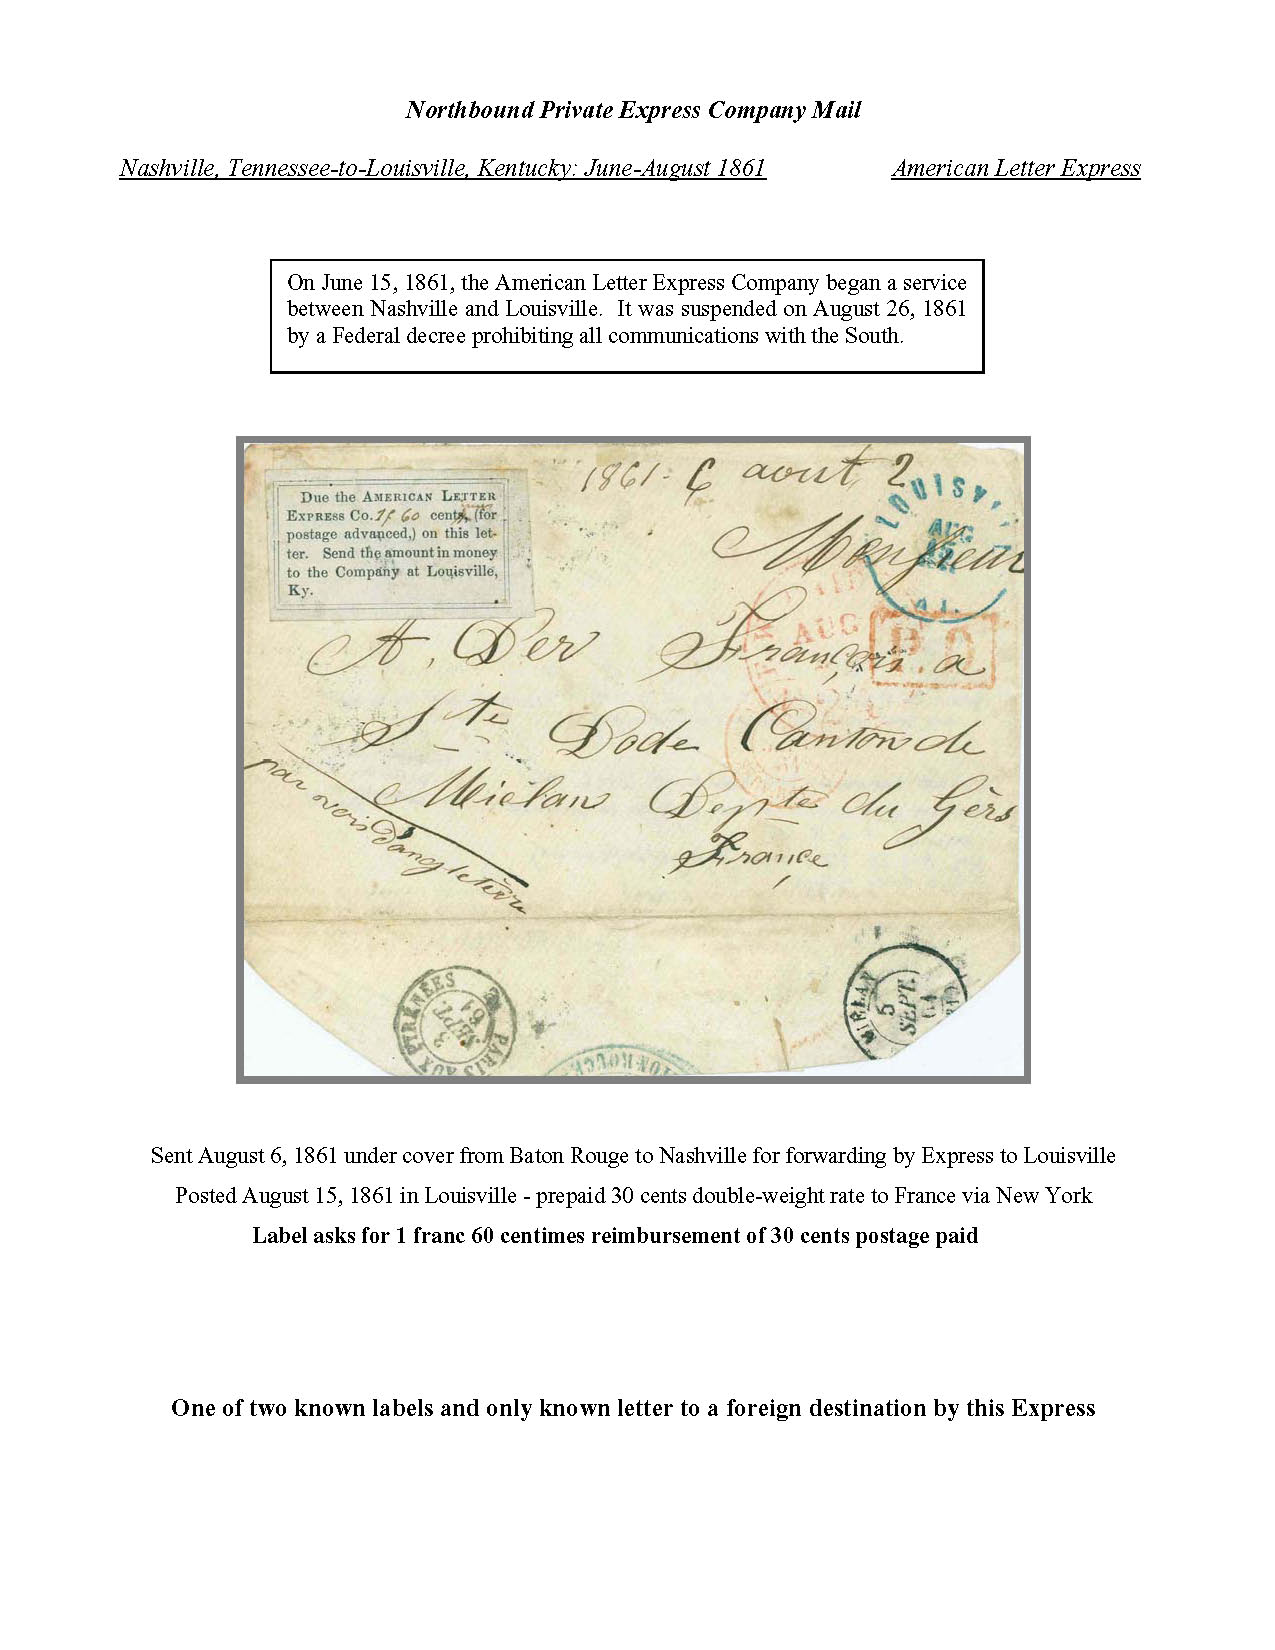 Northbound Private Express Company Mail
Nashville, Tennessee-to-Louisville, Kentucky: June-August 1861 American Letter Express
On June 15, 1861, the American Letter Express Company began a service
between Nashville and Louisville. It was suspended on August 26, 1861
by a Federal decree prohibiting all communications with the South.
1861 - 6 aout 2
Due the AMERICAN LETTER
EXPRESS CO. 1f 60 cents, (for
postage advanced,) on this let-
ter. Send the amount in money
to the Company at Louisville,
Ky.
LOUISV
AUG
Monsieur
AUG
P.D
A. Der François a
Ste Dode Canton de
Mielan Depte du Gèrs
France
par voie d'angleterre
PARIS AUX PYRÉNÉES
3
SEPT.
61
MIELAN
5
SEPT.
61
TON-ROUGE
Sent August 6, 1861 under cover from Baton Rouge to Nashville for forwarding by Express to Louisville
Posted August 15, 1861 in Louisville - prepaid 30 cents double-weight rate to France via New York
Label asks for 1 franc 60 centimes reimbursement of 30 cents postage paid
One of two known labels and only known letter to a foreign destination by this Express